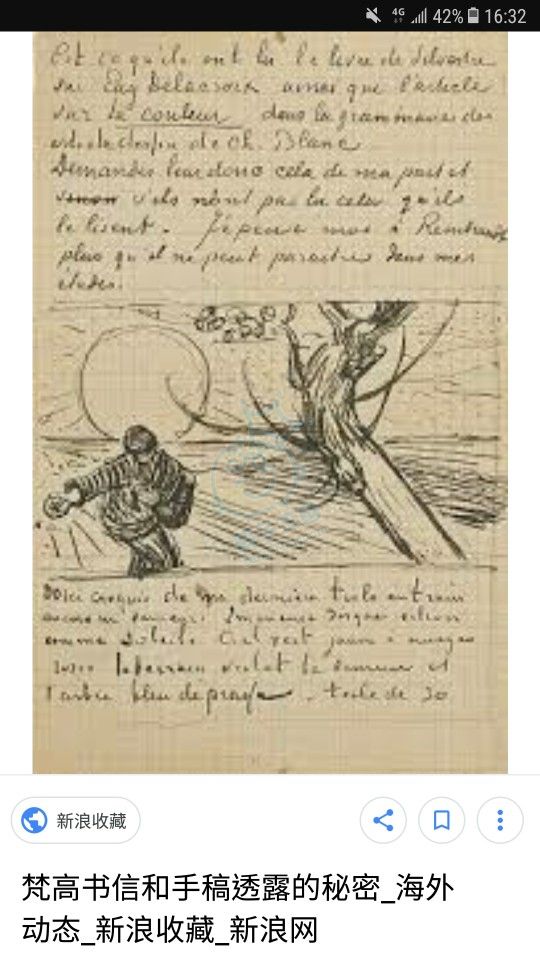 4G 42% 16:32
Est ce qu'ils ont lu le livre de Silvestre
sur Eug Delacroix ainsi que l'article
sur la couleur dans la grammaire des
arts du dessin de Ch. Blanc
Demandez leur donc cela de ma part et
sinon s'ils n'ont pas lu cela qu'ils
le lisent. Je pense moi à Rembrandt
plus qu'il ne peut paraitre dans mes
études.
Voici croquis de ma dernière toile en train
encore un semeur. Immense disque citron
comme soleil. Ciel vert jaune à nuages
roses. le terrain violet le semeur et
l'arbre bleu de prusse. toile de 30
新浪收藏
梵高书信和手稿透露的秘密_海外
动态_新浪收藏_新浪网